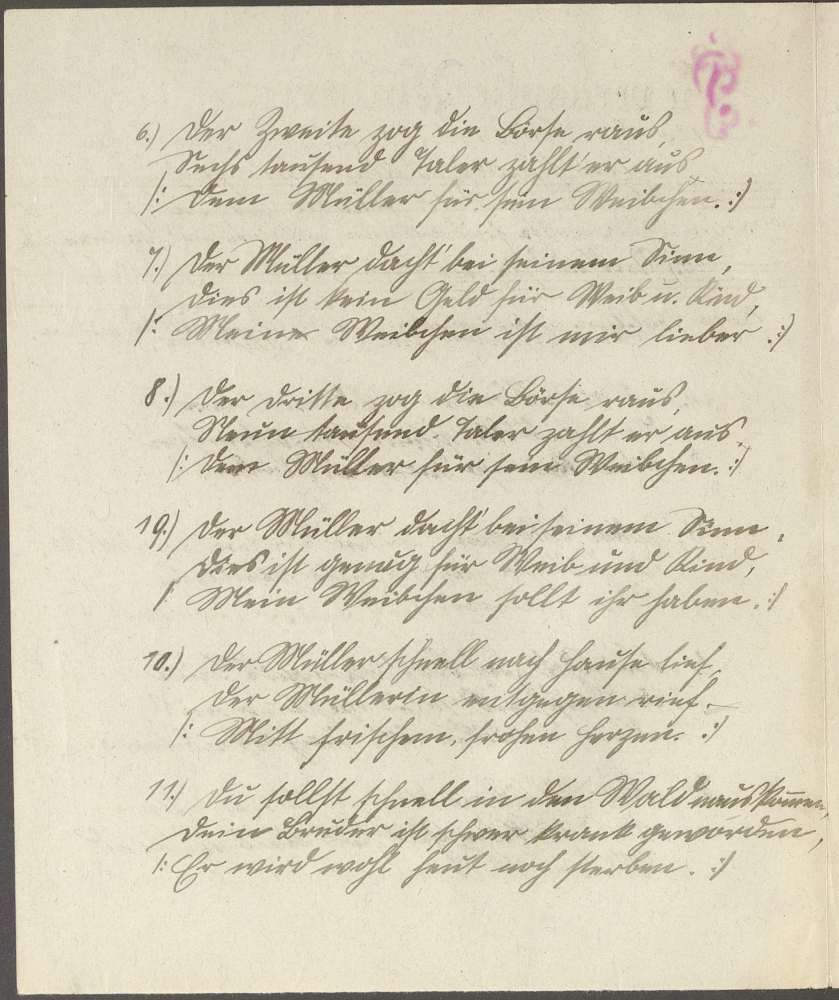 6.) Der Zweite zog die Börse raus,
Sechs tausend Taler zahlt' er aus
/: Dem Müller für sein Weibchen. :/
7.) Der Müller dacht' bei seinem Sinn,
Dies ist kein Geld für Weib u. Kind,
/: Meine Weibchen ist mir lieber. :/
8.) Der Dritte zog die Börse raus,
Neun tausend Taler zahlt er aus,
/: Dem Müller für sein Weibchen. :/
19.) Der Müller dacht' bei seinem Sinn,
Dies ist genug für Weib und Kind,
/: Mein Weibchen sollt ihr haben. :/
10.) Der Müller schnell nach Hause lief,
Der Müllerin entgegen rief.
/: Mitt frischem, frohen Herzen. :/
11.) Du sollst schnell in den Wald nauskommen,
Dein Bruder ist schwer krank geworden,
/: Er wird wohl heut noch sterben. :/